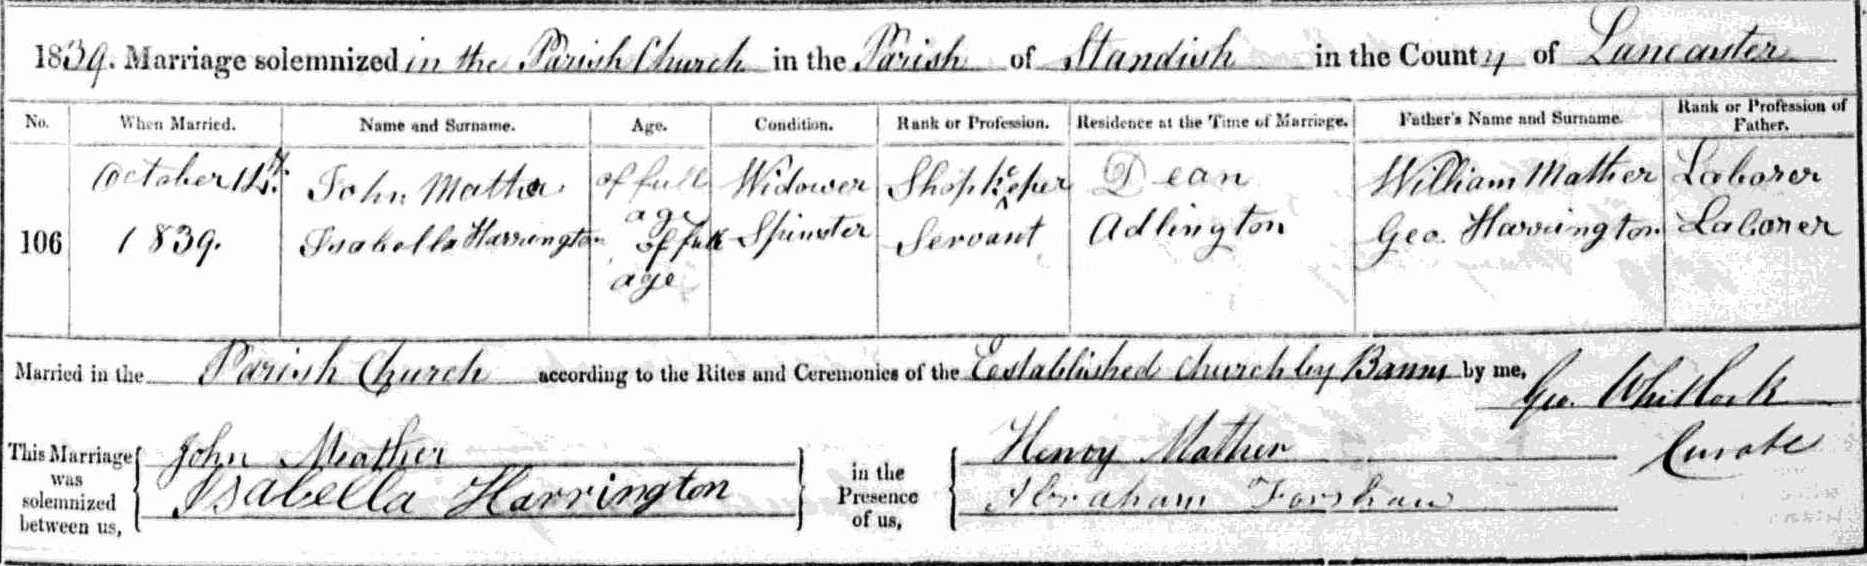 1839. Marriage solemnized in the Parish Church in the Parish of Standish in the County of Lancaster
No. When Married. Name and Surname. Age. Condition. Rank or Profession. Residence at the Time of Marriage. Father's Name and Surname. Rank or Profession of Father.
October 14th John Mather of full age Widower Shopkeper Dean William Mather Laborer
106 1839. Isabella Harrington of full age Spinster Servant Adlington Geo. Harrington Laborer
Married in the Parish Church according to the Rites and Ceremonies of the Established Church by Banns by me,
Geo. Whitlock
Curate
This Marriage was solemnized between us, John Mather in the Presence of us, Henry Mather
Isabella Harrington Abraham Forshaw